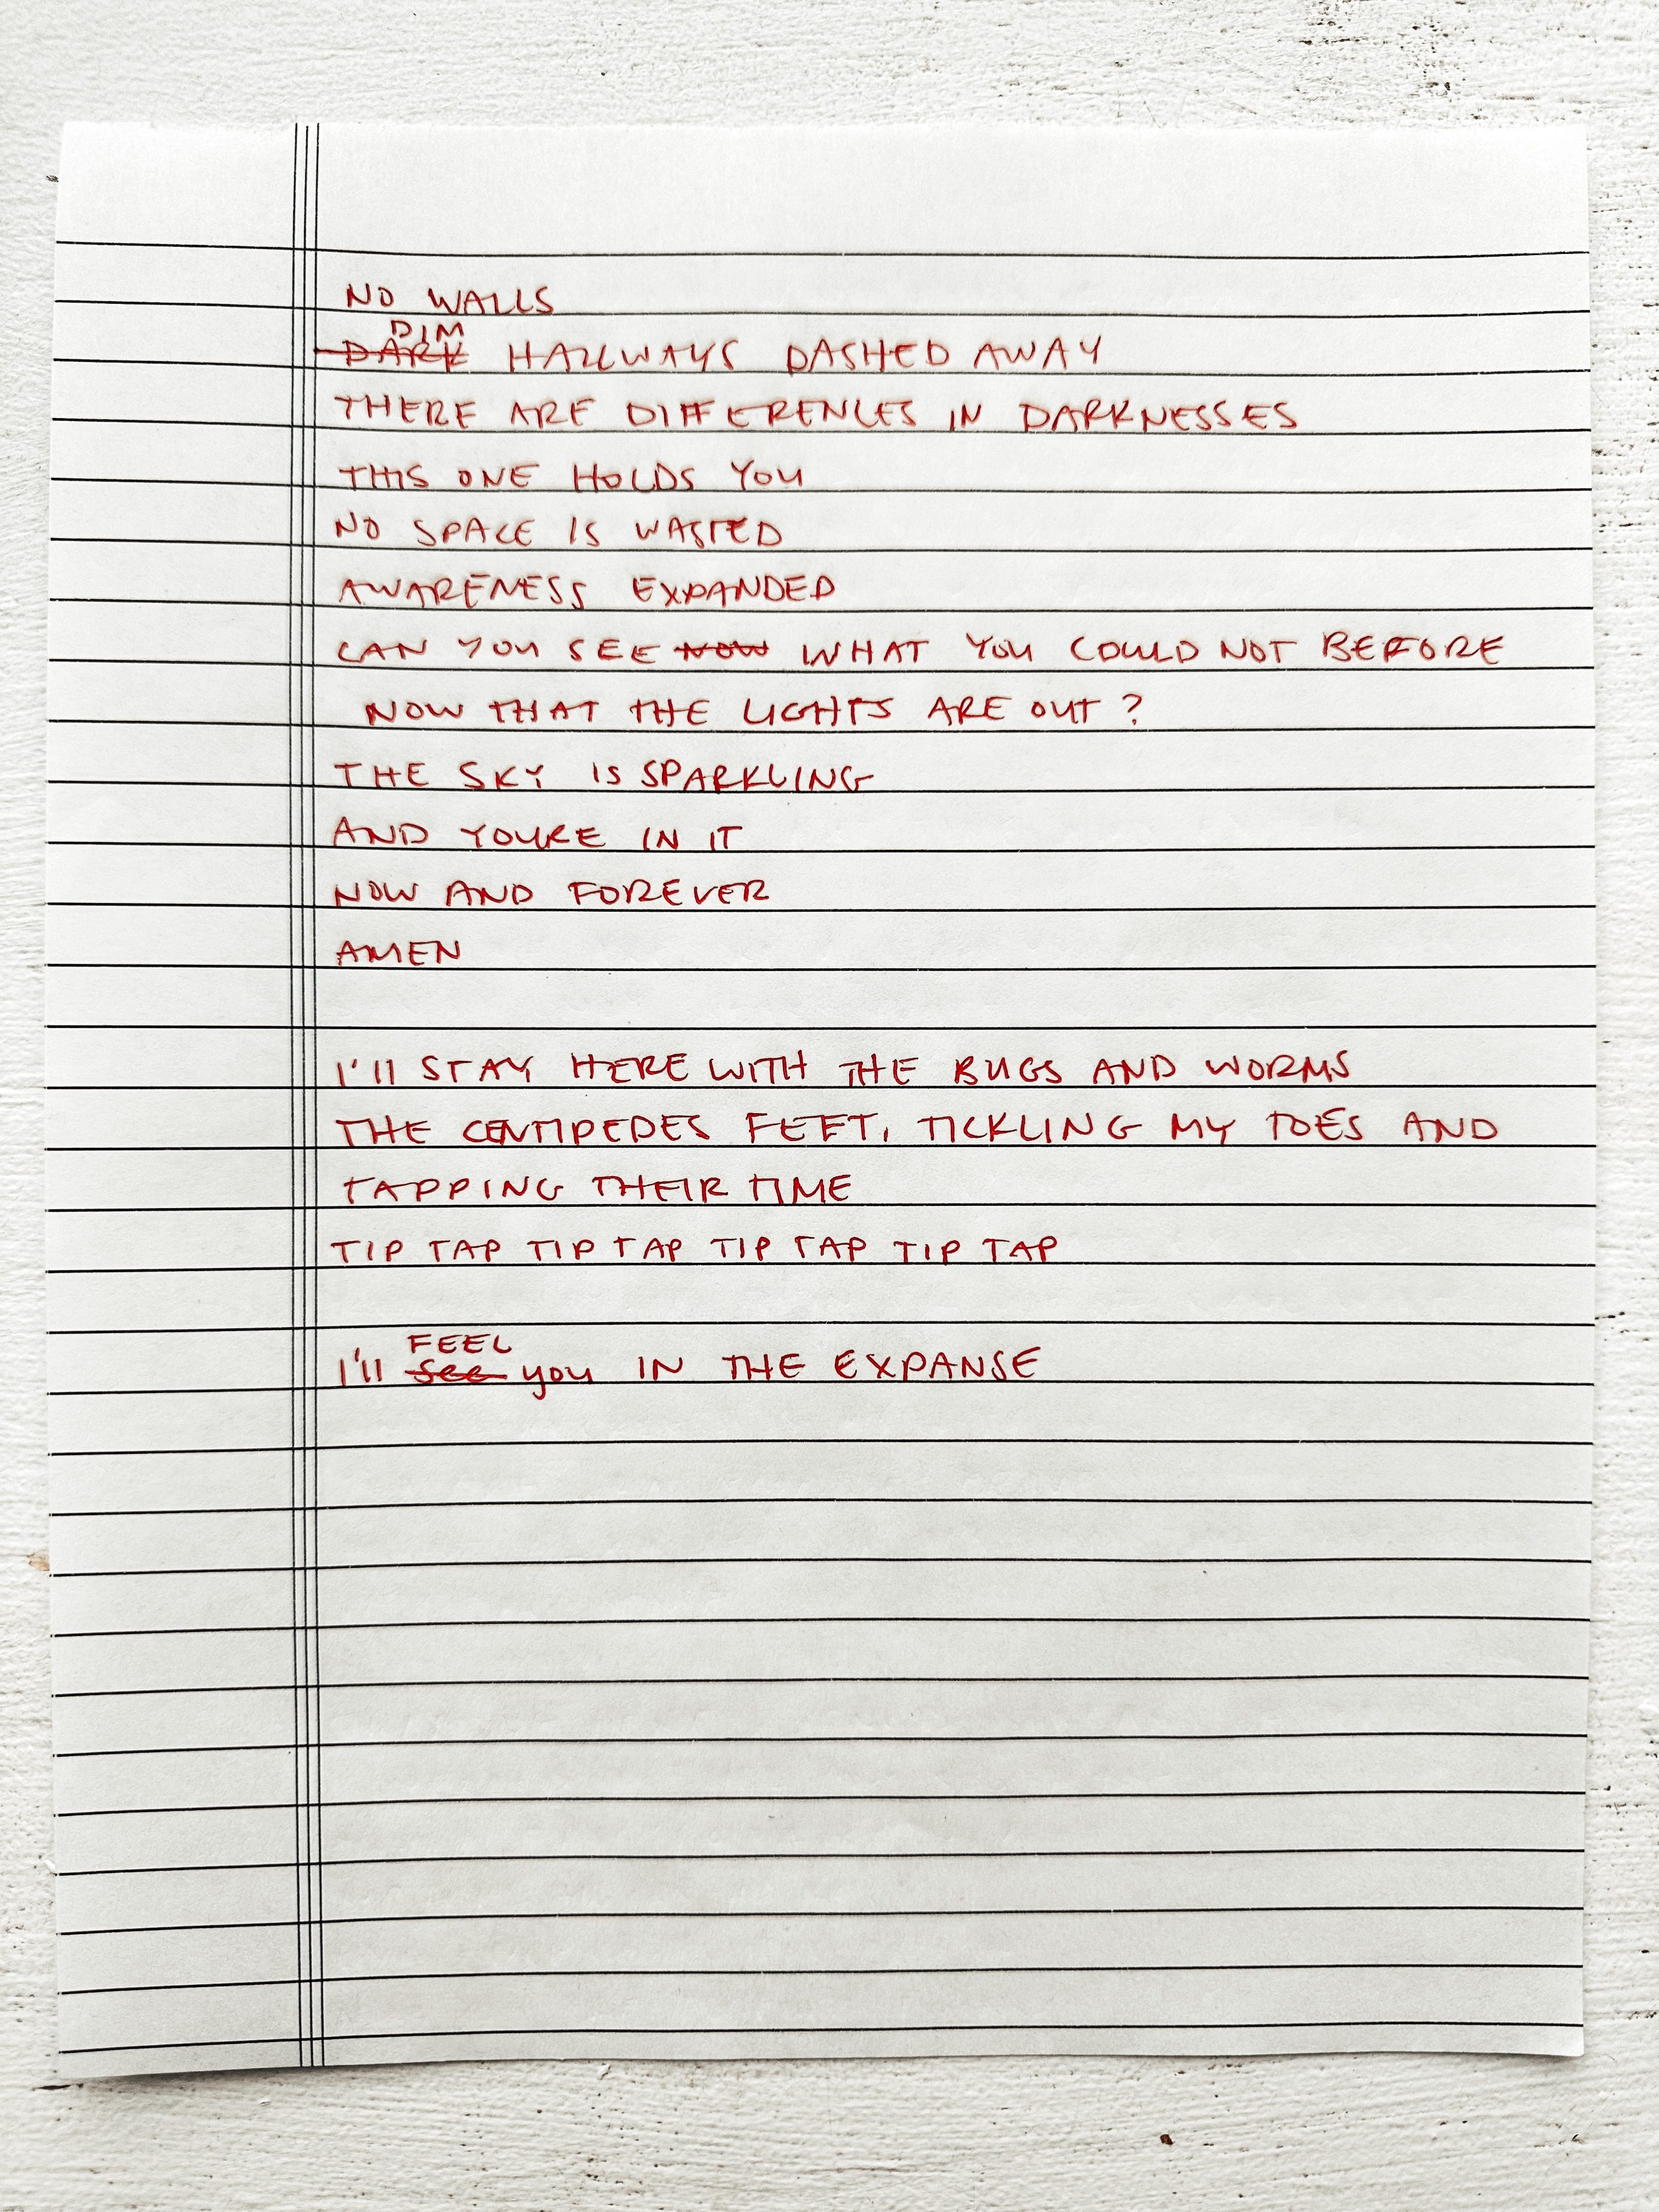 NO WALLS
DIM
DARK HALLWAYS DASHED AWAY
THERE ARE DIFFERENCES IN DARKNESSES
THIS ONE HOLDS YOU
NO SPACE IS WASTED
AWARENESS EXPANDED
CAN YOU SEE NOW WHAT YOU COULD NOT BEFORE
NOW THAT THE LIGHTS ARE OUT?
THE SKY IS SPARKLING
AND YOURE IN IT
NOW AND FOREVER
AMEN
I'll STAY HERE WITH THE BUGS AND WORMS
THE CENTIPEDES FEET, TICKLING MY TOES AND
TAPPING THEIR TIME
TIP TAP TIP TAP TIP TAP TIP TAP
FEEL
I'll see you IN THE EXPANSE